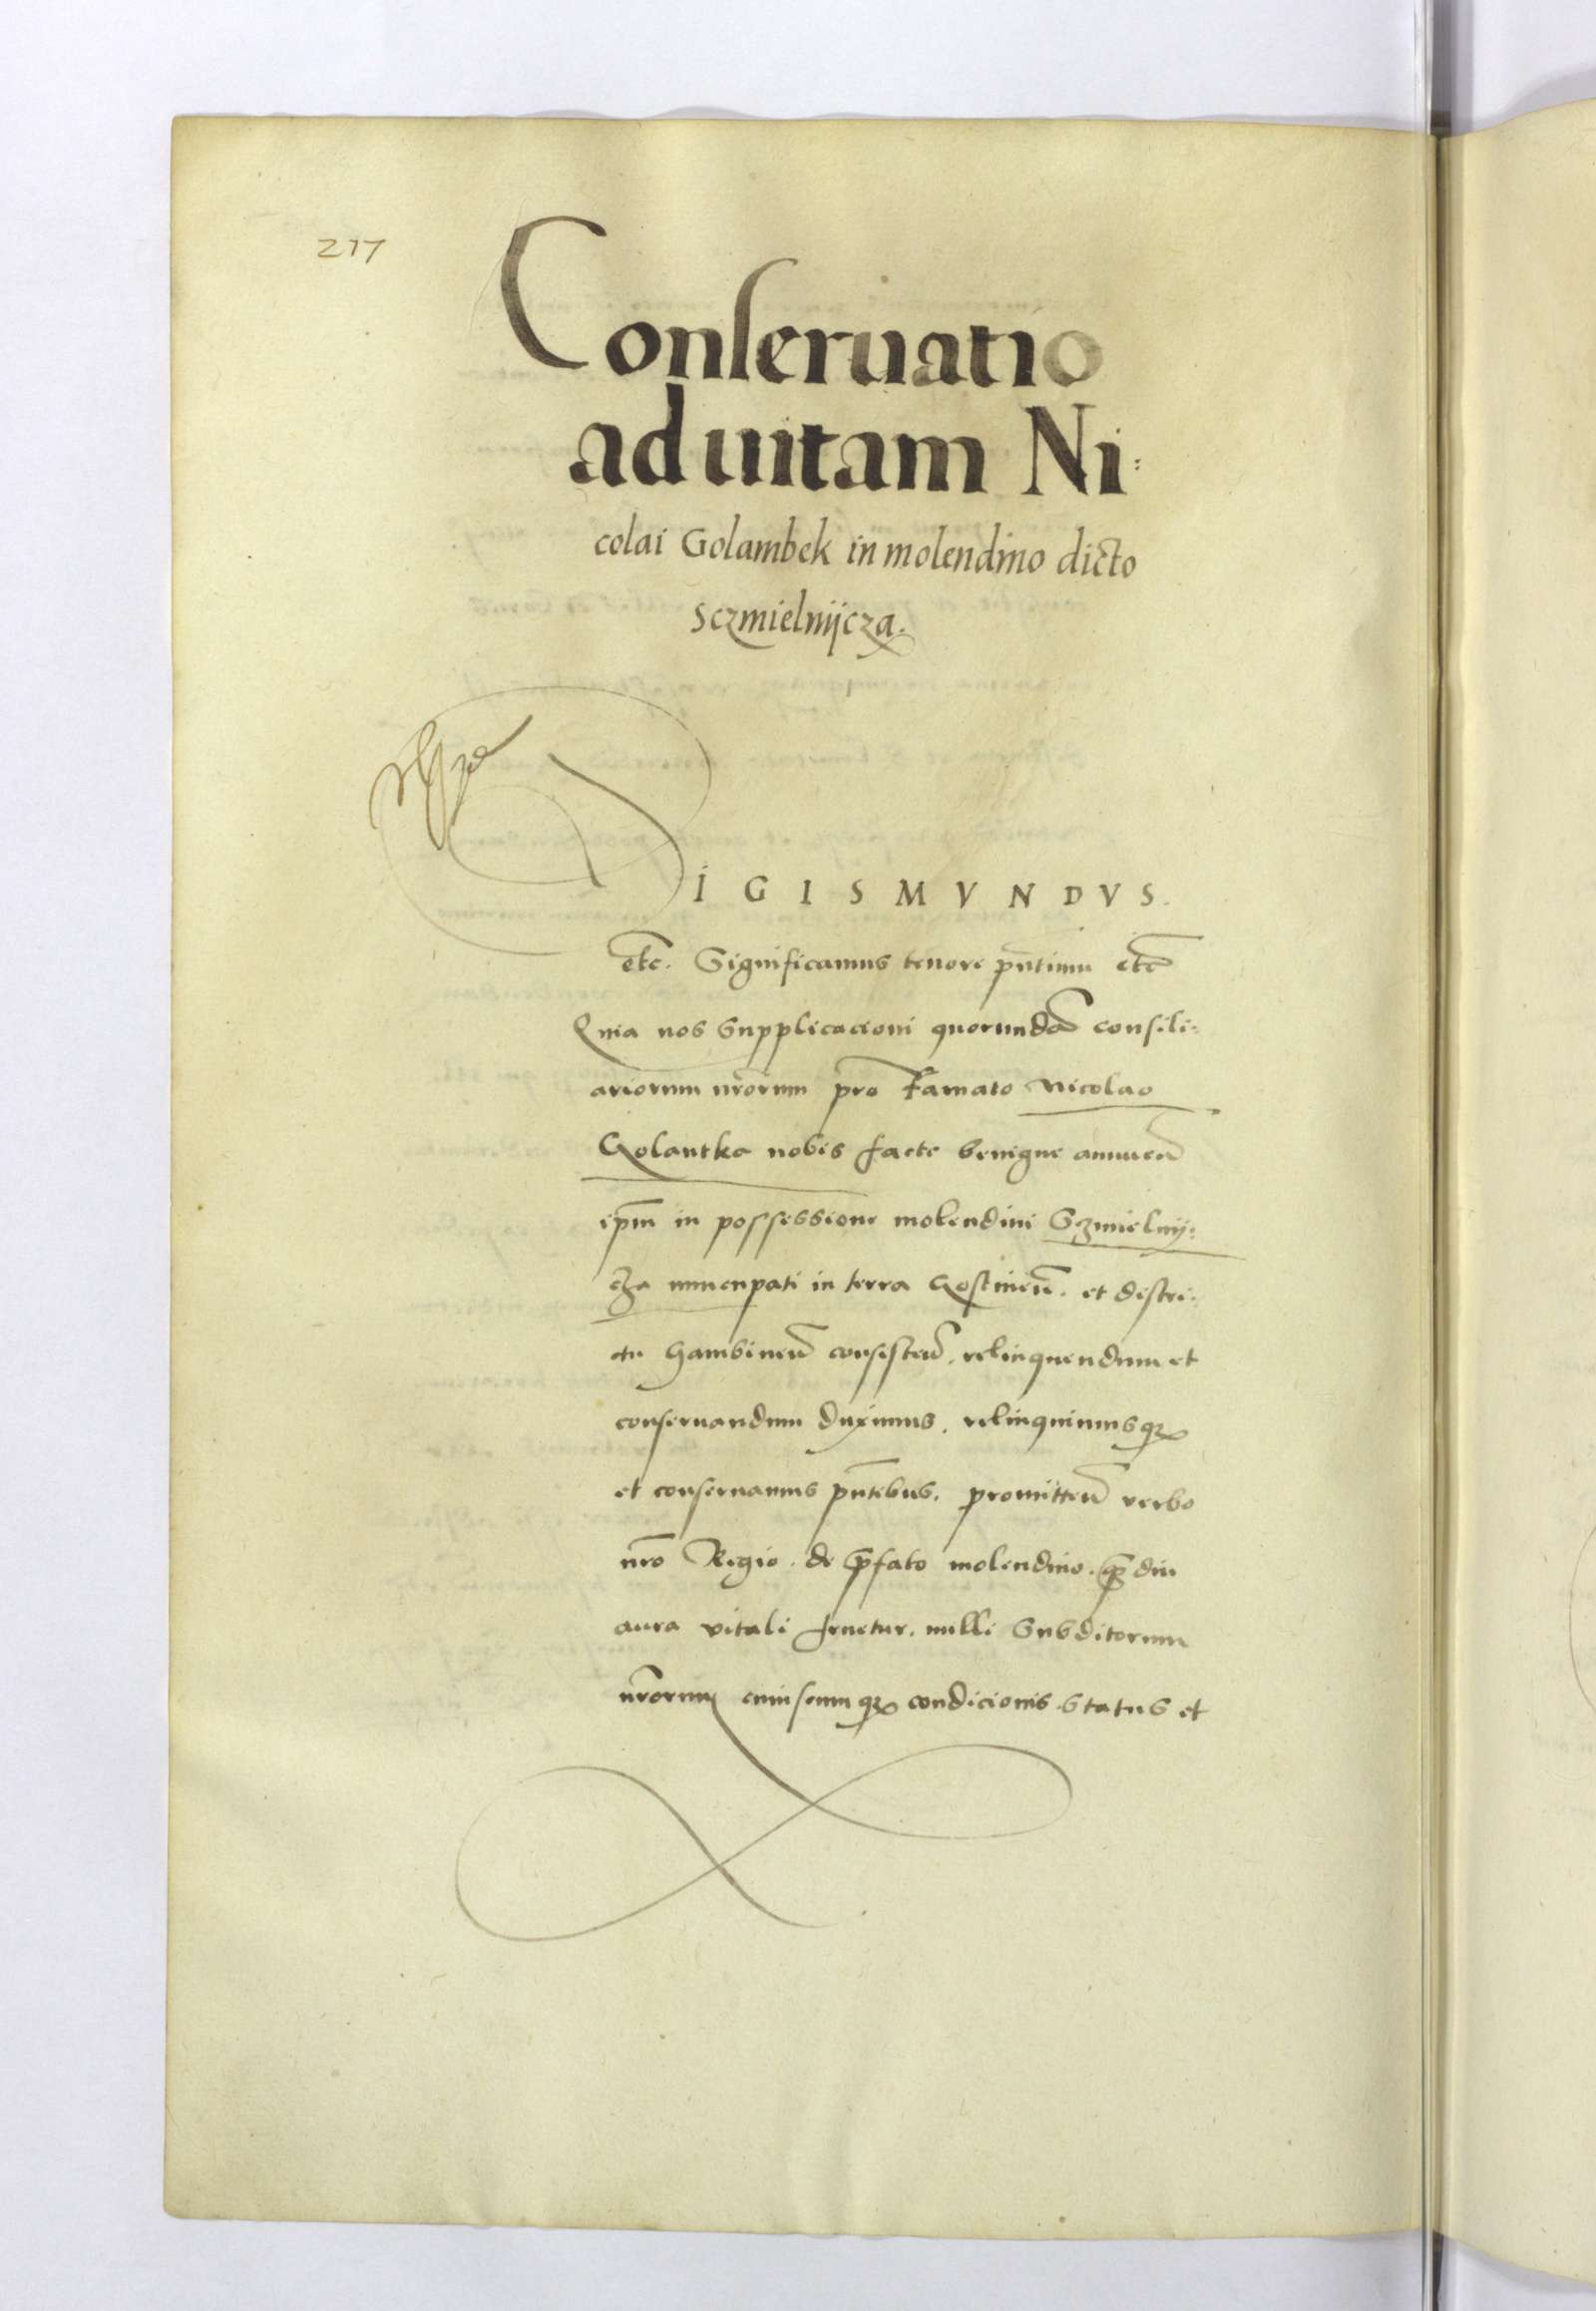 217
Conseruatio
ad uitam Ni:
colai Golambek in molendino dicto
Sczmielnijcza.
SIGISMVNDVS.
etc. Significamus tenore pntium etc
Quia nos supplicacioni quorundam consili:
ariorum nrorum pro famato Nicolao
Golantka nobis facte benigne annuen
ipm in possessione molendini Sczmielnij:
cza nuncupati in terra Gostinen. et distri:
ctu Gambinen consisten. relinquendum et
conseruandum duximus. relinquimusq
et conseruamus pntibus. promitten verbo
nro Regio. de prefato molendino. q diu
aura vitali fruetur. nulli subditorum
nrorum cuiuscumq condicionis status et